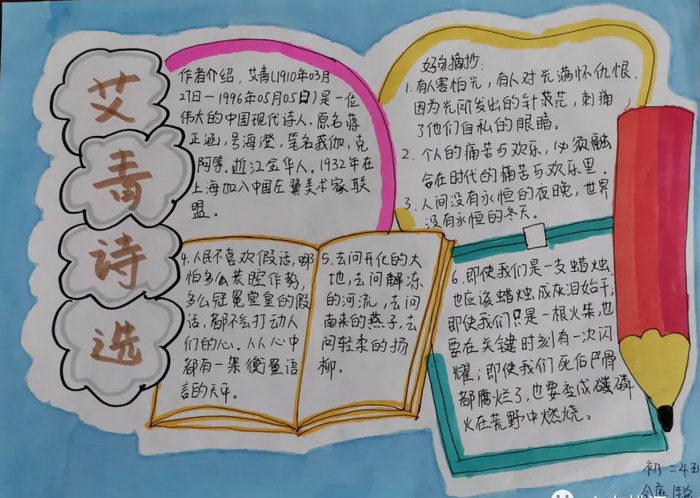 艾青诗选
作者介绍，艾青(1910年03月
27日—1996年05月05日)是一位
伟大的中国现代诗人，原名蒋
正涵，号海澄，笔名莪伽，克
阿等，浙江金华人。1932年在
上海加入中国左翼美术家联
盟。
好句摘抄：
1.有人害怕光，有人对光满怀仇恨，
因为光所发出的针芒，刺痛
了他们自私的眼睛。
2.个人的痛苦与欢乐，必须融
合在时代的痛苦与欢乐里。
3.人间没有永恒的夜晚，世界
没有永恒的冬天。
4.人民不喜欢假话，哪
怕多么装腔作势，
多么冠冕堂皇的假
话，都不会打动人
们的心。人人心中
都有一架衡量语
言的天平
5.去问开化的大
地，去问解冻
的河流，去问
南来的燕子，去
问轻柔的扬
柳。
6.即使我们是一支蜡烛，
也应该蜡烛成灰泪始干；
即使我们只是一根火柴，也
要在关键时刻有一次闪
耀；即使我们死后尸骨
都腐烂了，也要变成磷
火在荒野中燃烧。
初二